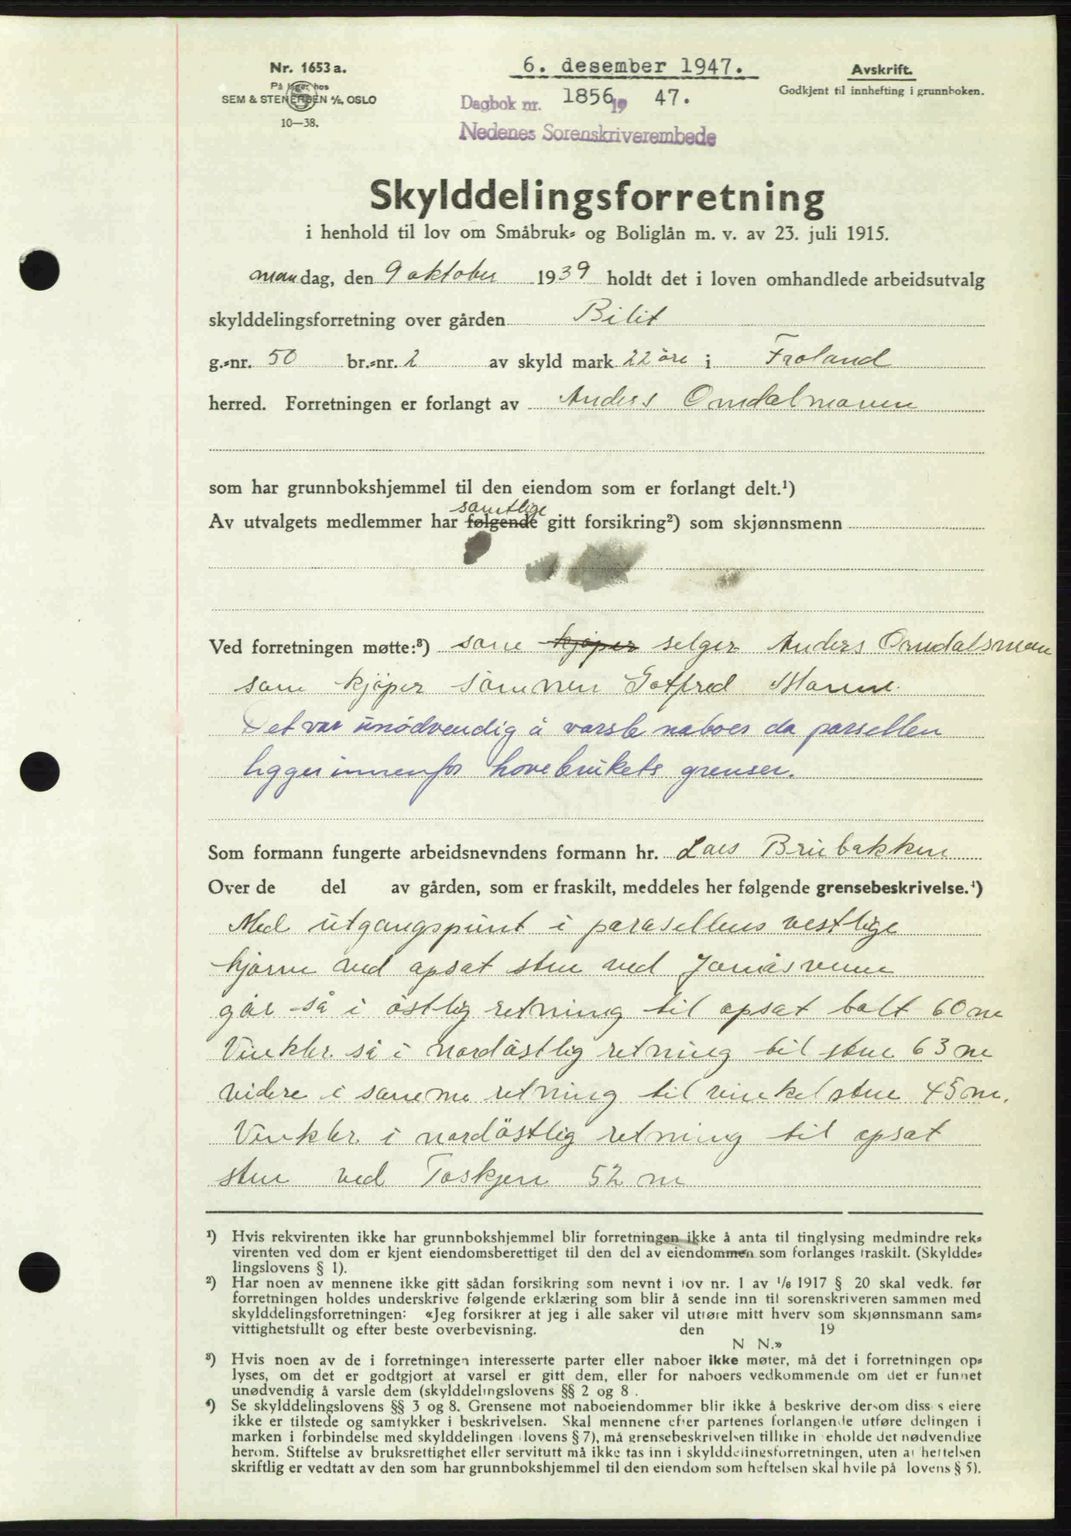 Nr. 1653 a.
På lager hos
SEM & STENERSEN A/S, OSLO
10—38.
6. desember 1947.
Dagbok nr. 1856 19 47.
Nedenes Sorenskriverembede
Avskrift.
Godkjent til innhefting i grunnboken.
Skylddelingsforretning
i henhold til lov om Småbruk- og Boliglån m. v. av 23. juli 1915.
mandag, den 9 oktober 1939 holdt det i loven omhandlede arbeidsutvalg
skylddelingsforretning over gården Bilit
g.-nr. 50 br.-nr. 2 av skyld mark 22 öre i Froland
herred. Forretningen er forlangt av Anders Omdalmauen
som har grunnbokshjemmel til den eiendom som er forlangt delt.¹)
samtlige
Av utvalgets medlemmer har følgende gitt forsikring²) som skjønnsmenn
Ved forretningen møtte:³) som kjøper selger Anders Omdalsmaue
som kjöper sönnen Gotfred Maune.
Det var unödvendig å varsle naboer da parsellen
ligger innenfor hovebrukets grenser.
Som formann fungerte arbeidsnevndens formann hr. Lars Brubakken
Over de del av gården, som er fraskilt, meddeles her følgende grensebeskrivelse.⁴)
Med utgangspunt i parasellens vestlige
hjørne ved opsat sten ved Jomåsveien
går så i östlig retning til opsat bolt 60 m
Vinkler så i nordöstlig retning til sten 63 m
videre i samme retning til vinkelsten 45 m.
Vinkler i nordöstlig retning til opsat
sten ved Toskjen 52 m
¹) Hvis rekvirenten ikke har grunnbokshjemmel blir forretningen ikke å anta til tinglysing medmindre rek-
virenten ved dom er kjent eiendomsberettiget til den del av eiendommen som forlanges fraskilt. (Skyldde-
lingslovens § 1).
²) Har noen av mennene ikke gitt sådan forsikring som nevnt i lov nr. 1 av 1/6 1917 § 20 skal vedk. før
forretningen holdes underskrive følgende erklæring som blir å sende inn til sorenskriveren sammen med
skylddelingsforretningen: «Jeg forsikrer at jeg i alle saker vil utføre mitt hverv som skjønnsmann sam-
vittighetsfullt og efter beste overbevisning. den 19
N N.»
³) Hvis noen av de i forretningen interesserte parter eller naboer ikke møter, må det i forretningen op-
lyses, om det er godtgjort at varsel er gitt dem, eller for naboers vedkommende om det er funnet
unødvendig å varsle dem (skylddelingslovens §§ 2 og 8 .
⁴) Se skylddelingslovens §§ 3 og 8. Grensene mot naboeiendommer blir ikke å beskrive dersom diss s eiere
ikke er tilstede og samtykker i beskrivelsen. Skal mennene efter partenes forlangende utføre delingen i
marken i forbindelse med skylddelingen (lovens § 7), må grensebeskrivelsen tillike in eholde det nødvendige
herom. Stiftelse av bruksrettighet eller servitutt må ikke tas inn i skylddelingsforretningen, uten at heftelsen
skriftlig er vedtatt av den som har grunnbokshjemmel til den eiendom som heftelsen skal hvile på lovens § 5).